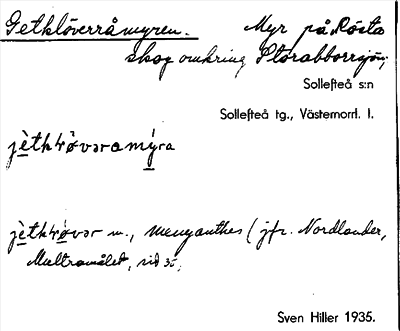 Getklöverråmyren. Myr på Rösta
skog omkring Storabborrsjön,
Sollefteå s:n
Sollefteå tg., Västernorrl. l.
jètkl̥ö̀vəramýra
jètkl̥ö̀vər m., menyanthes (jfr. Nordlander,
Multråmålet, sid 35,
Sven Hiller 1935.